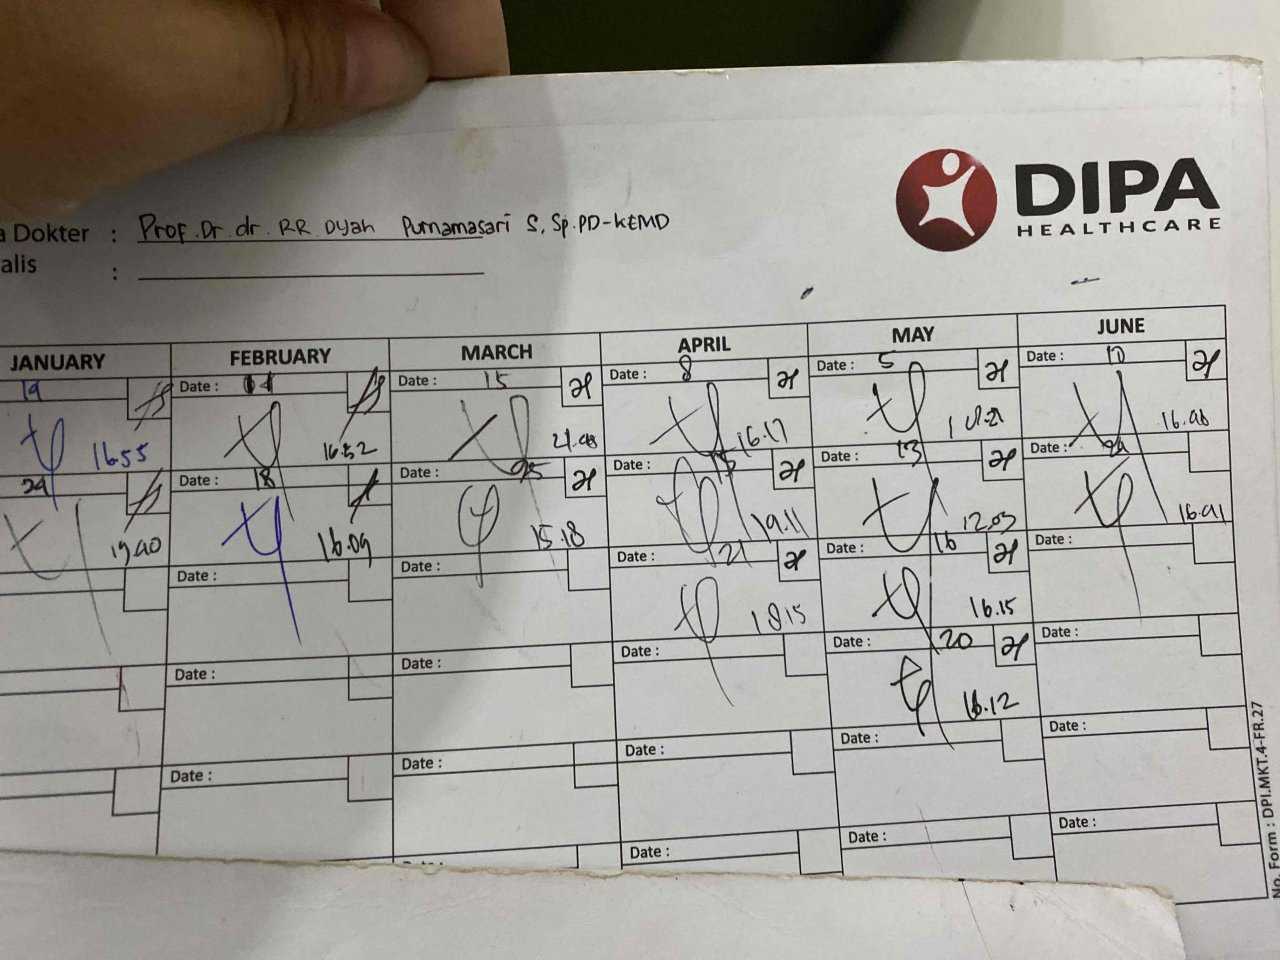 DIPA
HEALTHCARE
a Dokter : Prof. Dr. dr. R.R. Dyah Purnamasari S, Sp.PD-KEMD
alis :
JANUARY FEBRUARY MARCH APRIL MAY JUNE
19 Date : Date : 15 Date : 8 Date : 5 Date :
16.55 16.52 16.17
Date : 18 Date : Date : Date : 13 Date :
16.09 15.18 19.11 12.03
Date : Date : Date : 21 Date : 16 Date :
18.15 16.15
Date : Date : Date : Date : 20 Date :
16.12
Date : Date : Date : Date : Date :
Date : Date : Date :
No. Form : DPI.MKT.4-FR.27